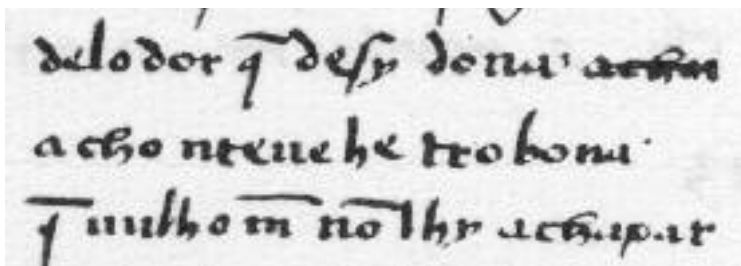 delo dor q̄ desy dona·
a cho nteue he tro bona·
q̄ nulho m̄ nō lhy achapar